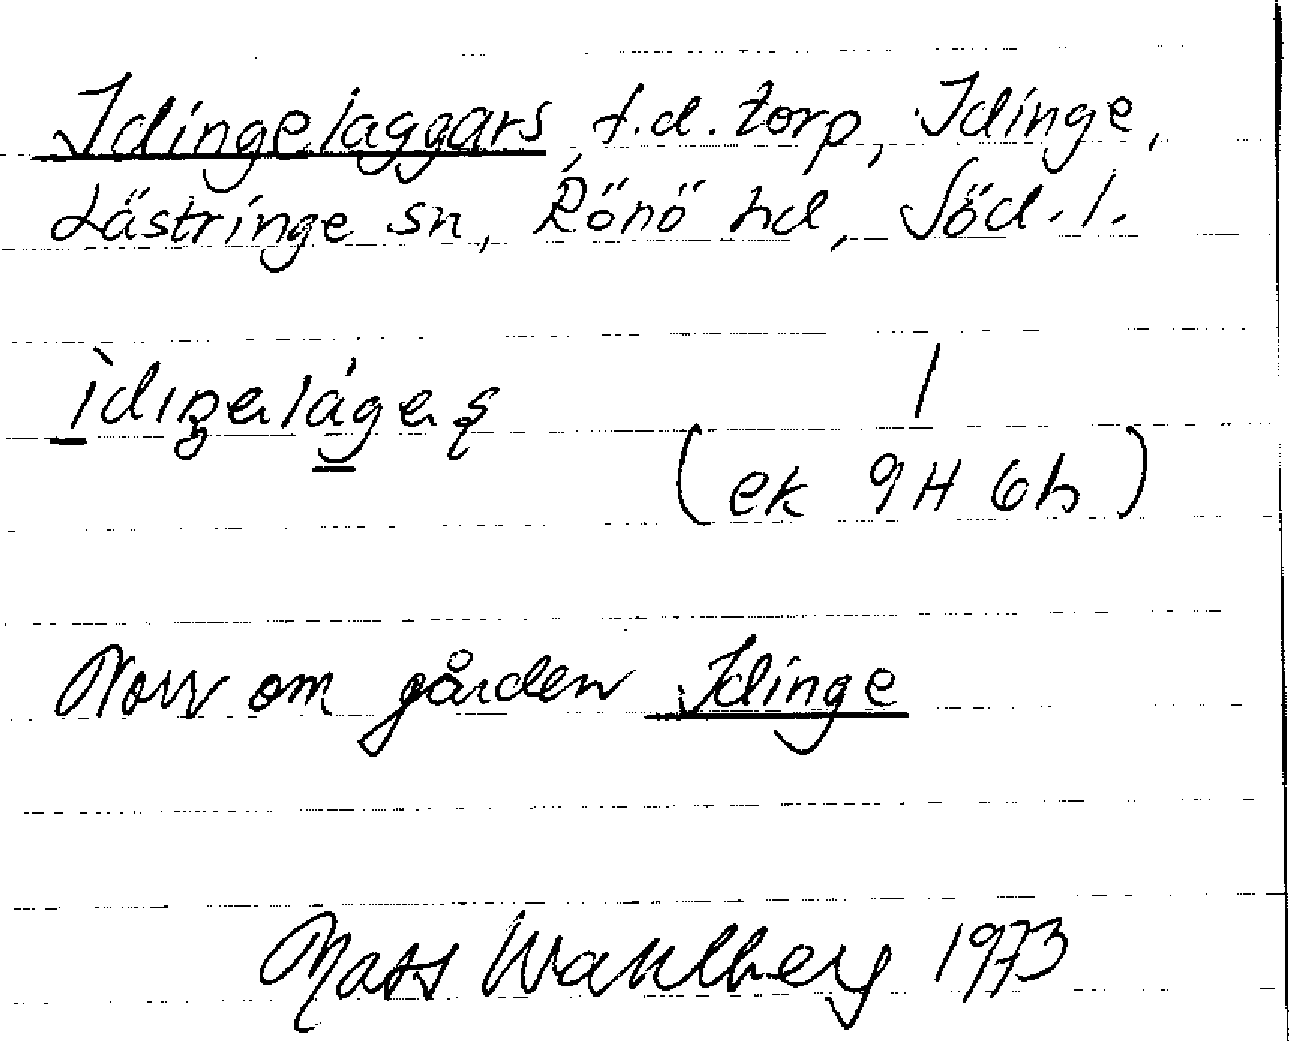 Idingelaggars, f.d. torp, Idinge,
Lästringe sn, Rönö hd, Söd. l.
1
(ek 9H 6h)
Norr om gården Idinge
Mats Wahlberg 1973